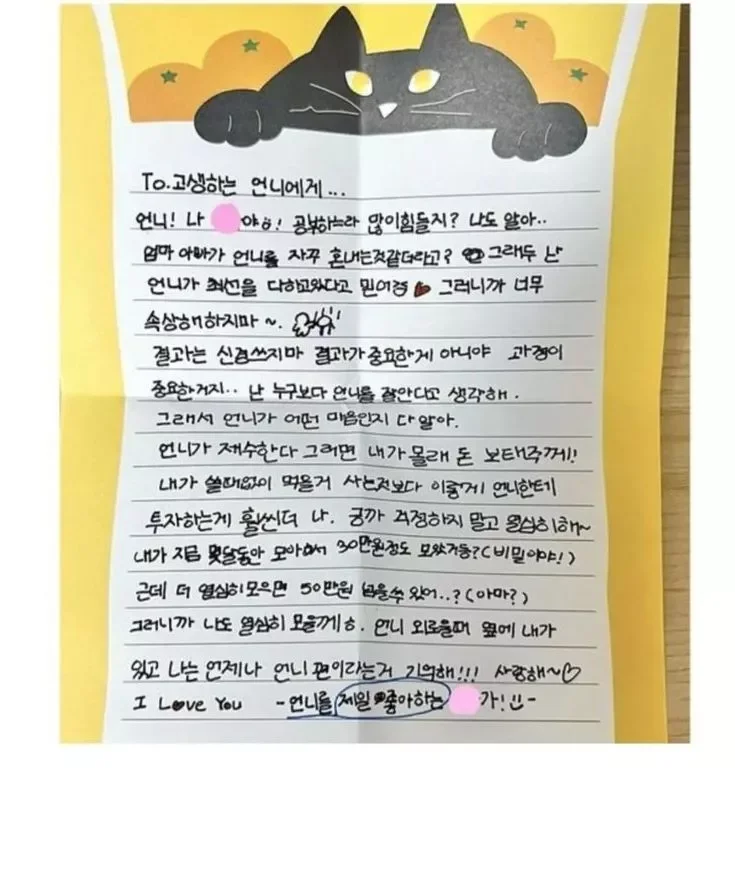 To.고생하는 언니에게...
언니! 나 야ㅎ! 공부하느라 많이힘들지? 나도 알아..
엄마 아빠가 언니를 자꾸 혼내는것같더라고? 그래두 난
언니가 최선을 다하고있다고 믿어 그러니까 너무
속상해하지마~.
결과는 신경쓰지마 결과가중요한게 아니야 과정이
중요한거지.. 난 누구보다 언니를 잘안다고 생각해.
그래서 언니가 어떤 마음인지 다알아.
언니가 재수한다 그러면 내가몰래 돈 보태주께!!
내가 쓸때없이 먹을거 사는것보다 이렇게 언니한테
투자하는게 훨씬더 나. 긍까 걱정하지 말고 열심히해~
내가 지금 몇달동안 모아서 30만원정도 모았거등?(비밀이야!)
근데 더 열심히모으면 50만원 넘을수 있어..?(아마?)
그러니까 나도 열심히 모을께ㅎ. 언니 외로울때 옆에 내가
있고 나는언제나 언니 편이라는거 기억해!!! 사랑해~♡
I Love You -언니를 제일 좋아하는 가!-